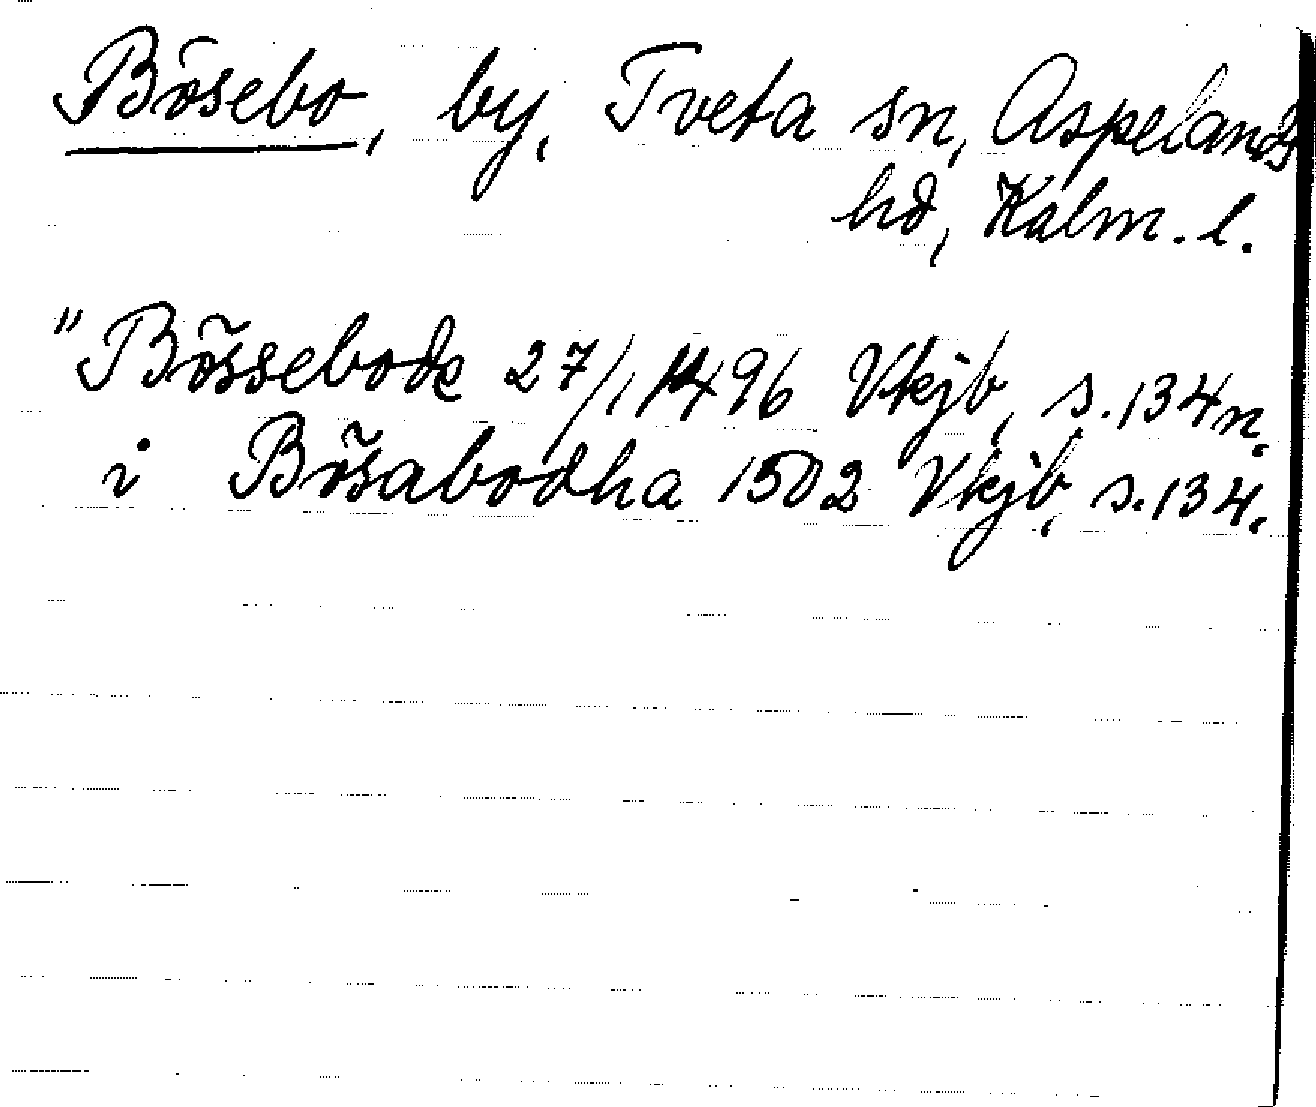 Bösebo, by, Tveta sn, Aspelands
hd, Kalm. l.
"Bössebode 27/1 1496 Vkjb, s. 134 n.
i Bösabodha 1502 Vkjb, s. 134.